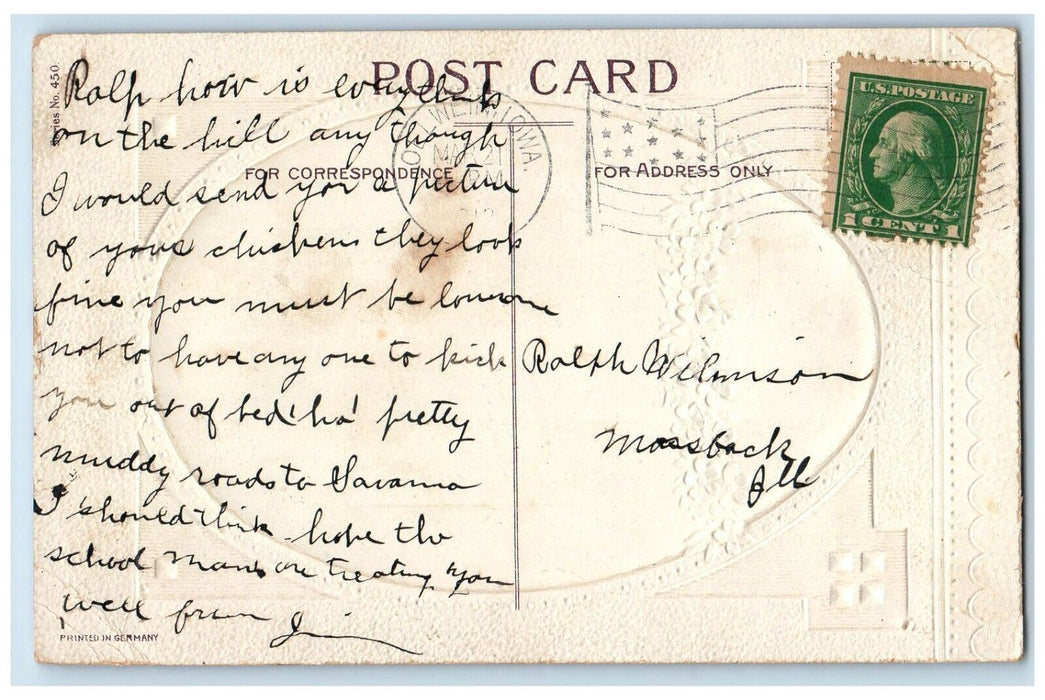 Series No. 450
POST CARD
U.S. POSTAGE
1 CENT 1
IOWA.
MAR 21
FOR CORRESPONDENCE
FOR ADDRESS ONLY
Ralph how is everything
on the hill any though
I would send you a picture
of your chickens they look
fine you must be lonesome
not to have any one to kick
you out of bed 'ha' pretty
muddy roads to Savanna
I should think hope the
school mams are treating you
well from Jim
Ralph
Mossback
Ill
PRINTED IN GERMANY